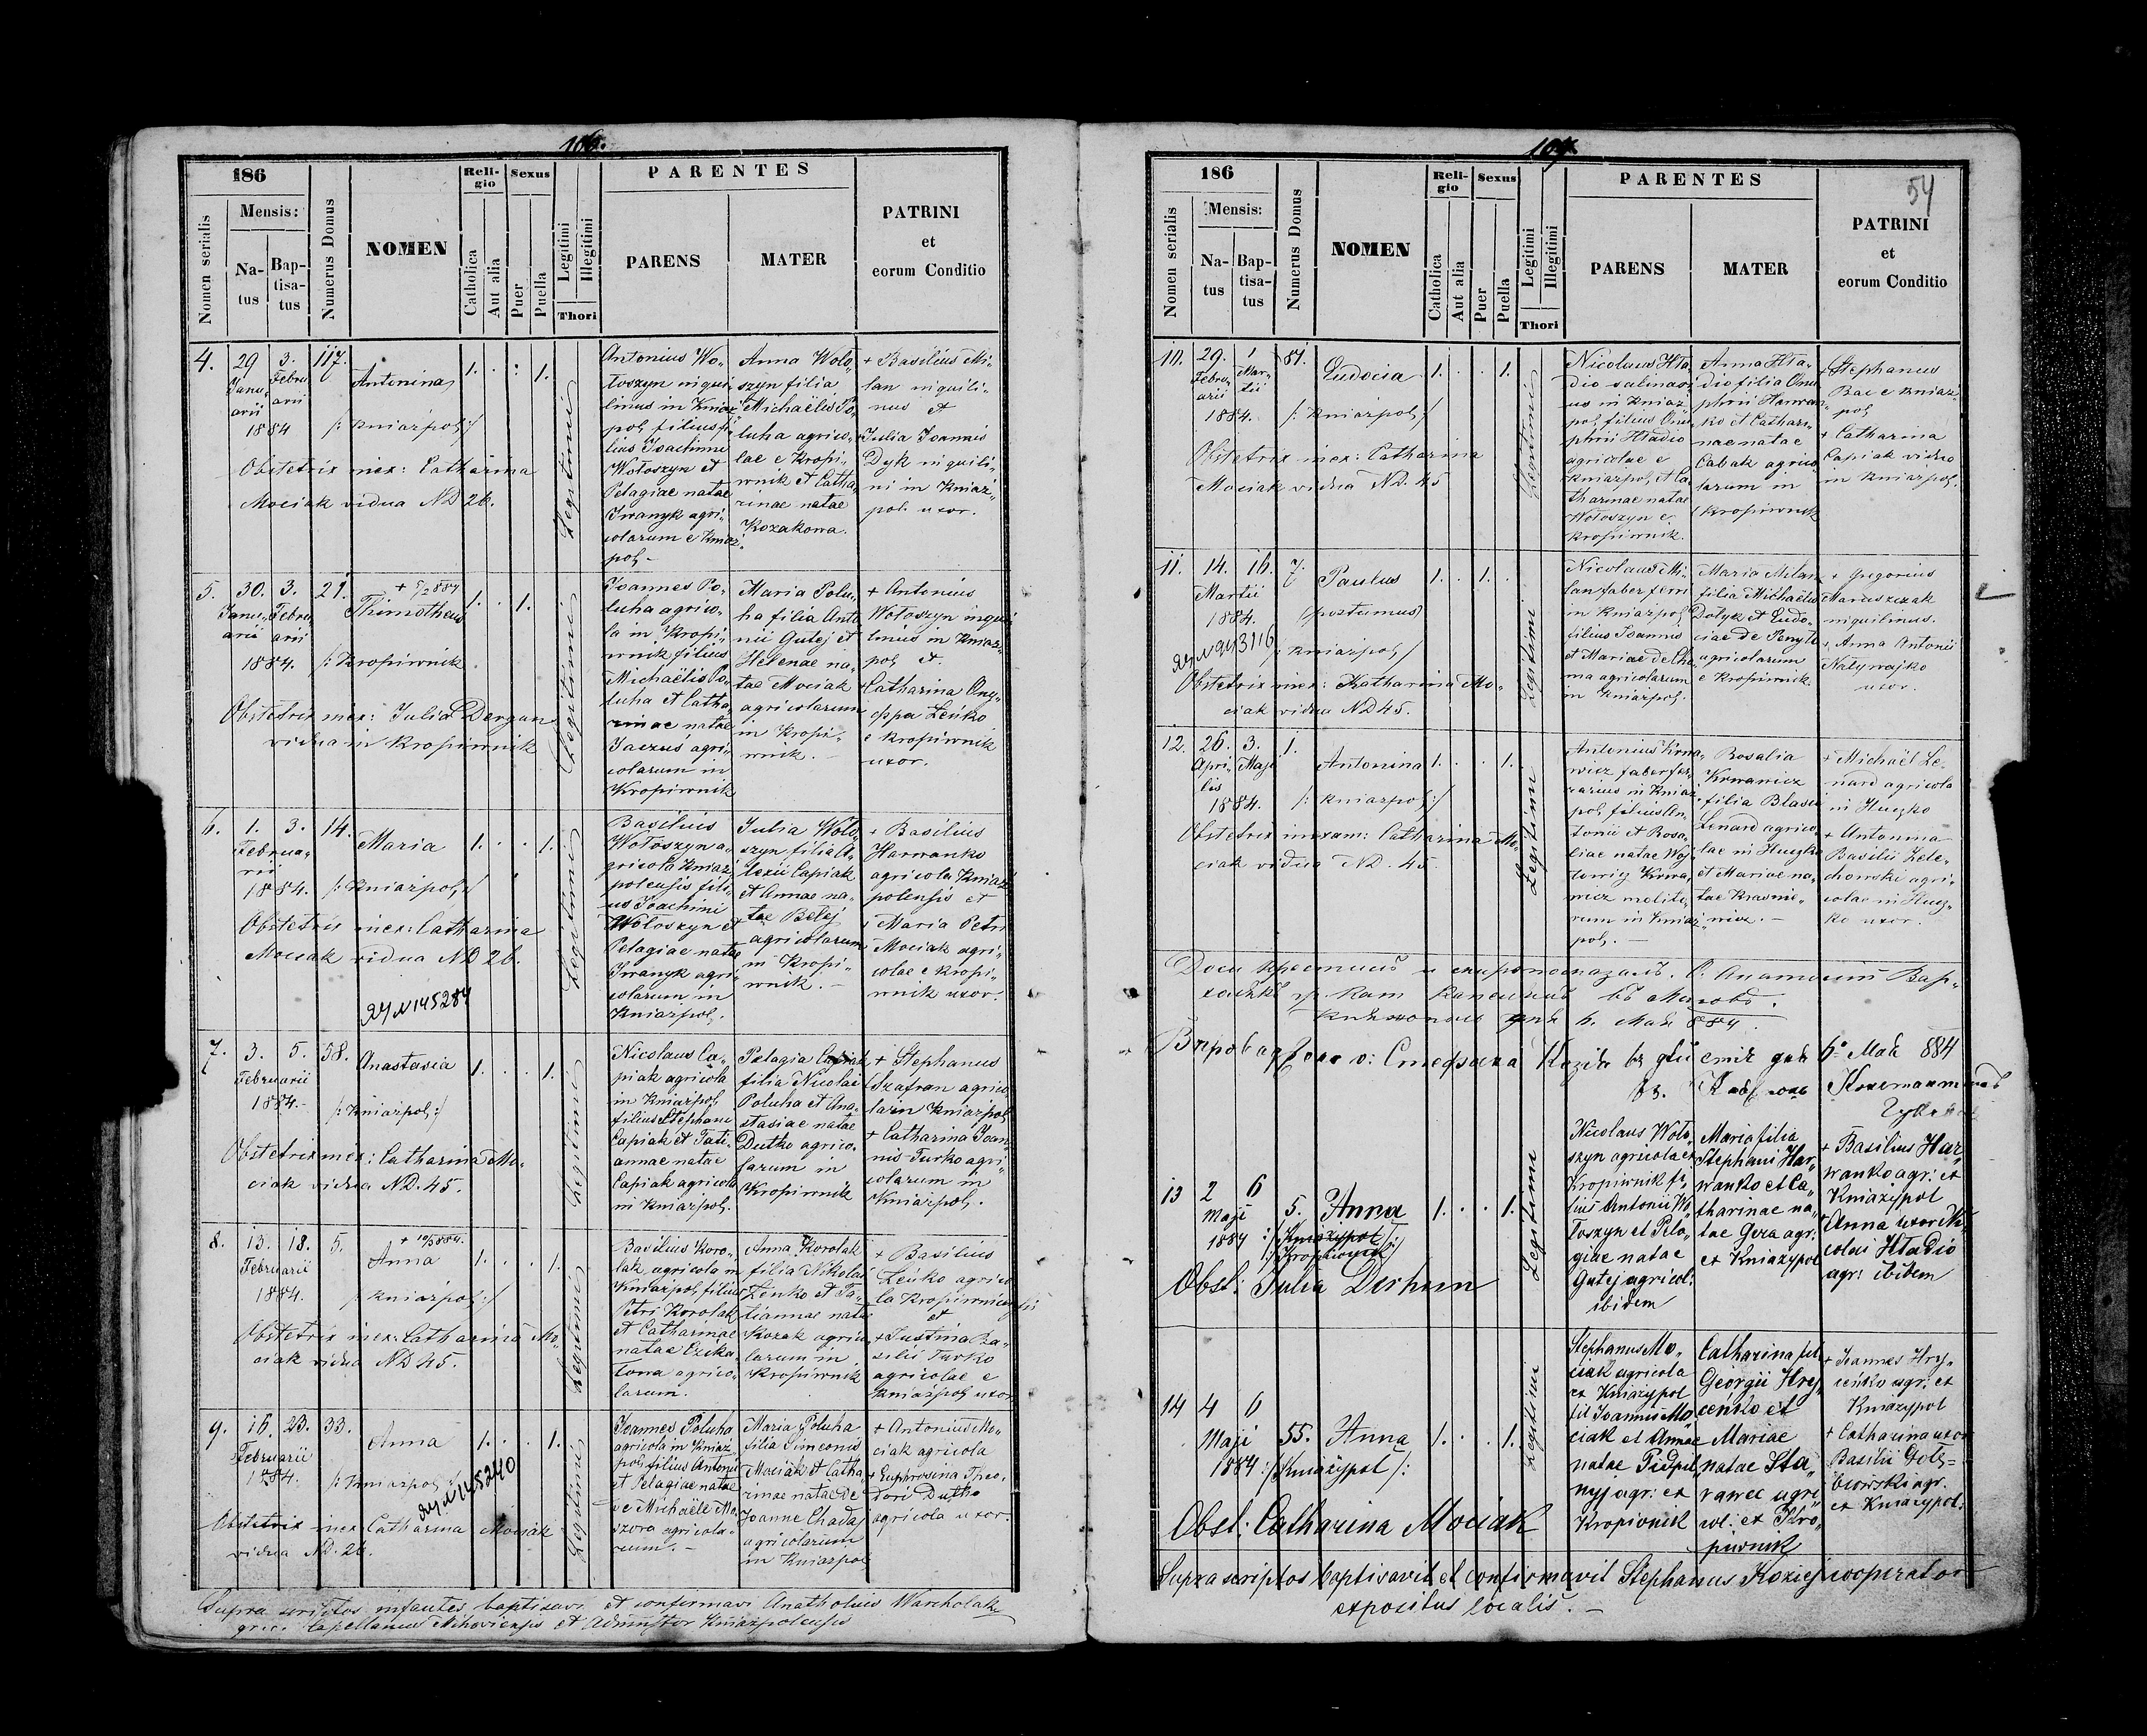 106.
186
PARENTES
Nomen serialis
Mensis:
Natus
Baptisatus
Numerus Domus
NOMEN
Religio
Catholica
Aut alia
Sexus
Puer
Puella
Legitimi
Illegitimi
Thori
PARENS
MATER
PATRINI
et
eorum Conditio
4. 29 3. 117.
Janu-
arii
Febru
arii
1884
Antonina 1. . : 1.
/: Kniażpol :/
Obstetrix inex: Catharina
Mociak vidua ND 26.
Legitimi
Antonius Wo-
łoszyn inqui-
linus in Kniaż-
pol filius fi-
lius Joachimi
Wołoszyn et
Pelagiae natae
Iwanyk agri-
colarum e Kniaż-
pol -
Anna Woło-
szyn filia
Michaëlis Po-
luha agrico-
lae e Kropi-
wnik et Catha-
rinae natae
Kozakowa.
+ Basilius Mi-
lan inquili-
nus et
+ Julia Joannis
Dyk inquili-
ni in Kniaż-
pol. uxor.
5. 30. 3. 21.
Janu-
arii
Febru
arii
1884.
+ 5/2 884
Thimotheus 1. . 1.
/: Kropiwnik
Obstetrix inex: Julia Dergan
vidua in Kropiwnik
Legitimi
Joannes Po-
luha agrico-
la in Kropi-
wnik filius
Michaëlis Po-
luha et Catha-
rinae natae
Jaczus agri-
colarum in
Kropiwnik
Maria Polu-
ha filia Anto
nii Gutej et
Helenae na-
tae Mociak
agricolarum
in Kropi-
wnik. -
+ Antonius
Wołoszyn inqui
linus in Kniaż-
pol et.
+ Catharina Ony-
Leńko
e Kropiwnik
uxor.
6. 1. 3. 14.
Februa-
rii
1884.
Maria 1. . . 1.
/: Kniażpol :/
Obstetrix inex: Catharina
Mociak vidua ND 26.
ЯЧ N 145284
Legitimi
Basilius
Wołoszyn a-
gricola Kniaż-
polensis fili-
us Joachimi
Wołoszyn et
Pelagiae natae
Iwanyk agri-
colarum in
Kniażpol.
Julia Woło-
szyn filia A-
lexii Capiak
et Annae na-
tae Belej
agricolarum
in Kropi-
wnik. -
+ Basilius
Harwanko
agricola Kniaż
polensis et
+ Maria Petri
Mociak agri-
colae e Kropi-
wnik uxor.
7. 3. 5. 58.
Februarii
1884.-
Anastasia 1. . . 1.
/: Kniażpol :/
Obstetrix inex: Catharina Mo-
ciak vidua ND. 45.
Legitimi
Nicolaus Ca-
piak agricola
in Kniażpol
filius Stephani
Capiak et Tati-
annae natae
Capiak agricola
in Kniażpol.
Pelagia Capiak
filia Nicolai
Poluha et Ana-
stasiae natae
Dutko agrico-
larum in
Kropiwnik
+ Stephanus
Szafran agrico
la in Kniażpol
+ Catharina Joan
nis Turko agri-
colarum in
Kniażpol.
8. 13. 18. 5.
Februarii
1884.
+ 10/3 884.
Anna 1. . . 1.
/: Kniażpol :/
Obstetrix inex: Catharina Mo-
ciak vidua ND 45.
Legitimi
Basilius Koro-
lak agricola in
Kniażpol, filius
Petri Korolak
et Catharinae
natae Czyka-
łowa agrico-
larum.
Anna Korolak
filia Nikolai
Leńko et Ta-
tiannae natae
Kozak agrico-
larum in
Kropiwnik
+ Basilius
Leńko agrico
la Kropiwnicensis
et
+ Justina Ba-
silii Turko
agricolae e
Kniażpol uxor
9. 16. 23. 33.
Februarii
1884.
Anna 1. . . 1.
/: Kniażpol :/
ЯЧ N 145240
Obstetrix inex Catharina Mociak
vidua ND. 26.
Legitimi
Joannes Poluha
agricola in Kniaż-
pol filius Antonii
et Pelagiae natae
de Michaële Mo-
szora agricola-
rum. -
Maria Poluha
filia Simeonis
Mociak et Catha-
rinae natae de
Joanne Chadaj
agricolarum
in Kniażpol
+ Antonius Mo-
ciak agricola
+ Euphrosina Theo-
dori Dutko
agricola uxor.
Supra scriptos infantes baptisavi et confirmavi Anatholius Warcholak
gr. c. Capellanus Michoviensis et Administor Kniażpolensis
107.
54
186
PARENTES
Nomen serialis
Mensis:
Natus
Baptisatus
Numerus Domus
NOMEN
Religio
Catholica
Aut alia
Sexus
Puer
Puella
Legitimi
Illegitimi
Thori
PARENS
MATER
PATRINI
et
eorum Conditio
10. 29. 1 81.
Febru-
arii
Mar-
tii
1884.
Eudocia 1. . . 1.
/: Kniażpol :/
Obstetrix inex: Catharina
Mociak vidua ND. 45
Legitimi
Nicolaus Hła
dio
us in Kniaż-
pol, filius Onu
phrii Hładio
agricolae e
Kniażpol, et Ca
tharinae natae
Wołoszyn e
Kropiwnik.
Anna Hła-
dio filia Onu
phrii Harwan-
ko et Cathari-
nae natae
Cabak agrico
larum in
Kropiwnik
+ Stephanus
Bac e Kniaż-
pol
+ Catharina
Capiak vidua
in Kniażpol.
11. 14. 16. 7.
Martii
1884.
Paulus 1. . 1. .
(postumus)
/: Kniażpol /
ЯЧ N 243116
Obstetrix inex: Katharina Mo-
ciak vidua ND 45.
Legitimi
Nicolaus Mi-
lan faber ferri
in Kniażpol
filius Joannis
et Mariae de Cho
ma agricolarum
in Kniażpol.
Maria Milan
filia Michaëlis
Dołyk et Eudo-
ciae de Penyło
agricolarum
e Kropiwnik.
+ Gregorius
Maruszczak
inquilinus.
+ Anna Antonii
Natywajko
uxor.
12. 26. 3. 1.
Apri-
lis
Maji
1884.
Antonina 1. . . 1.
/: Kniażpol :/
Obstetrix inexam: Catharina Mo-
ciak vidua ND. 45.
Legitimi
Antonius Krwa-
wicz faber fer-
rarius in Kniaż-
pol, filius An-
tonii et Rosa-
liae natae Woj-
towicz Krwa-
wicz molito-
rum in Kniaż-
pol. -
Rosalia
Krwawicz
filia Blasii
Lenard agrico-
lae in Huczko
et Mariae na-
tae Krasnie-
wicz. -
+ Michaël Le-
nard agricola
in Huczko
+ Antonina
Basilii Zele-
chowski agri-
colae in Hucz-
ko uxor.
13 2 6
Maji
1884
5. Anna 1. . . 1.
/: Kniażypol /
/: Kropiwnik :/
Obst: Julia Derhun
Legitimi
Nicolaus Woło-
szyn agricola ex
Kropiwnik fi-
lius Antonii Wo-
łoszyn et Pela-
giae natae
Gutej agricol:
ibidem
Maria filia
Stephani Har-
wanko et Ca-
tharinae na-
tae Gera agr:
ex Kniażypol
+ Basilius Har-
wanko agr: ex
Kniażypol
Anna uxor Ni-
colai Hładio
agr: ibidem
14 4 6
Maji
1884
55. Anna 1. . . 1.
:/ Kniażypol /:
Obst: Catharina Mociak
Legitimi
Stephanus Mo-
ciak agricola
ex Kniażypol
fil Joannis Mo
ciak et Annae
natae Pidpil
nyj agr: ex
Kropiwnik
Catharina fil
Georgii Hry-
ceńko et
Mariae
natae Sta-
rawec agri-
col: ex Kro-
piwnik
+ Joannes Hry-
ceńko agr: ex
Kniażypol
+ Catharina uxor
Basilii
agr.
ex Kniażypol:
Supra scriptos baptisavit et confirmavit Stephanus Koziej cooperator
expositus localis. -